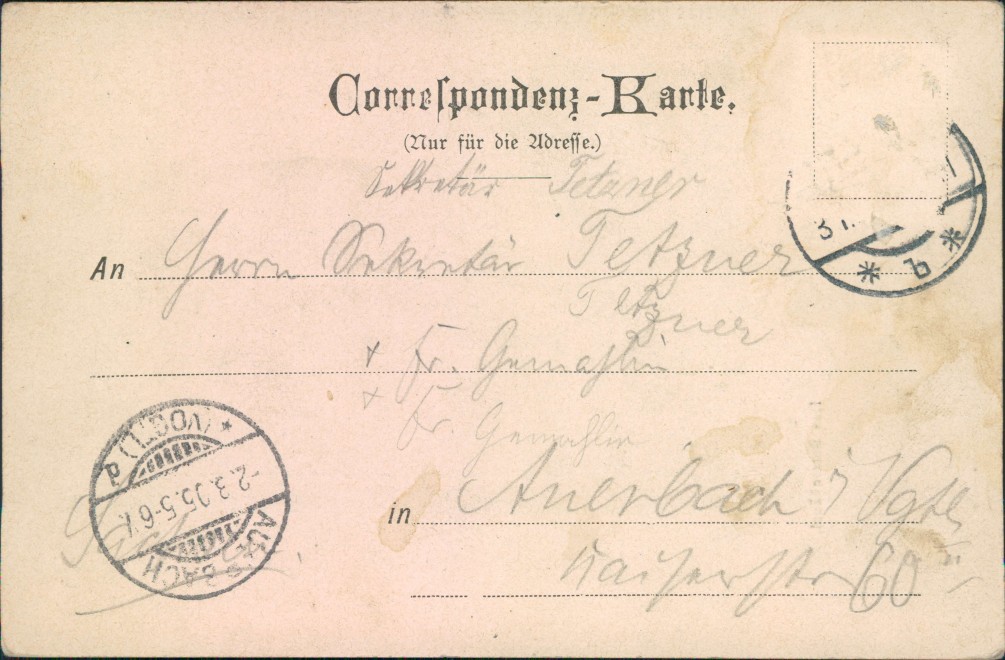 Correspondenz-Karte.
(Nur für die Adresse.)
Sekretär Tetzner
An Herrn Sekretär Tetzner
Tetzner
+ Fr. Gemahlin
+ Fr. Gemahlin
in Auerbach i Vgtl
Kaiserstr 60
AUERBACH
-2.3.05.5-6 N.
(VOGTL) *
* b *